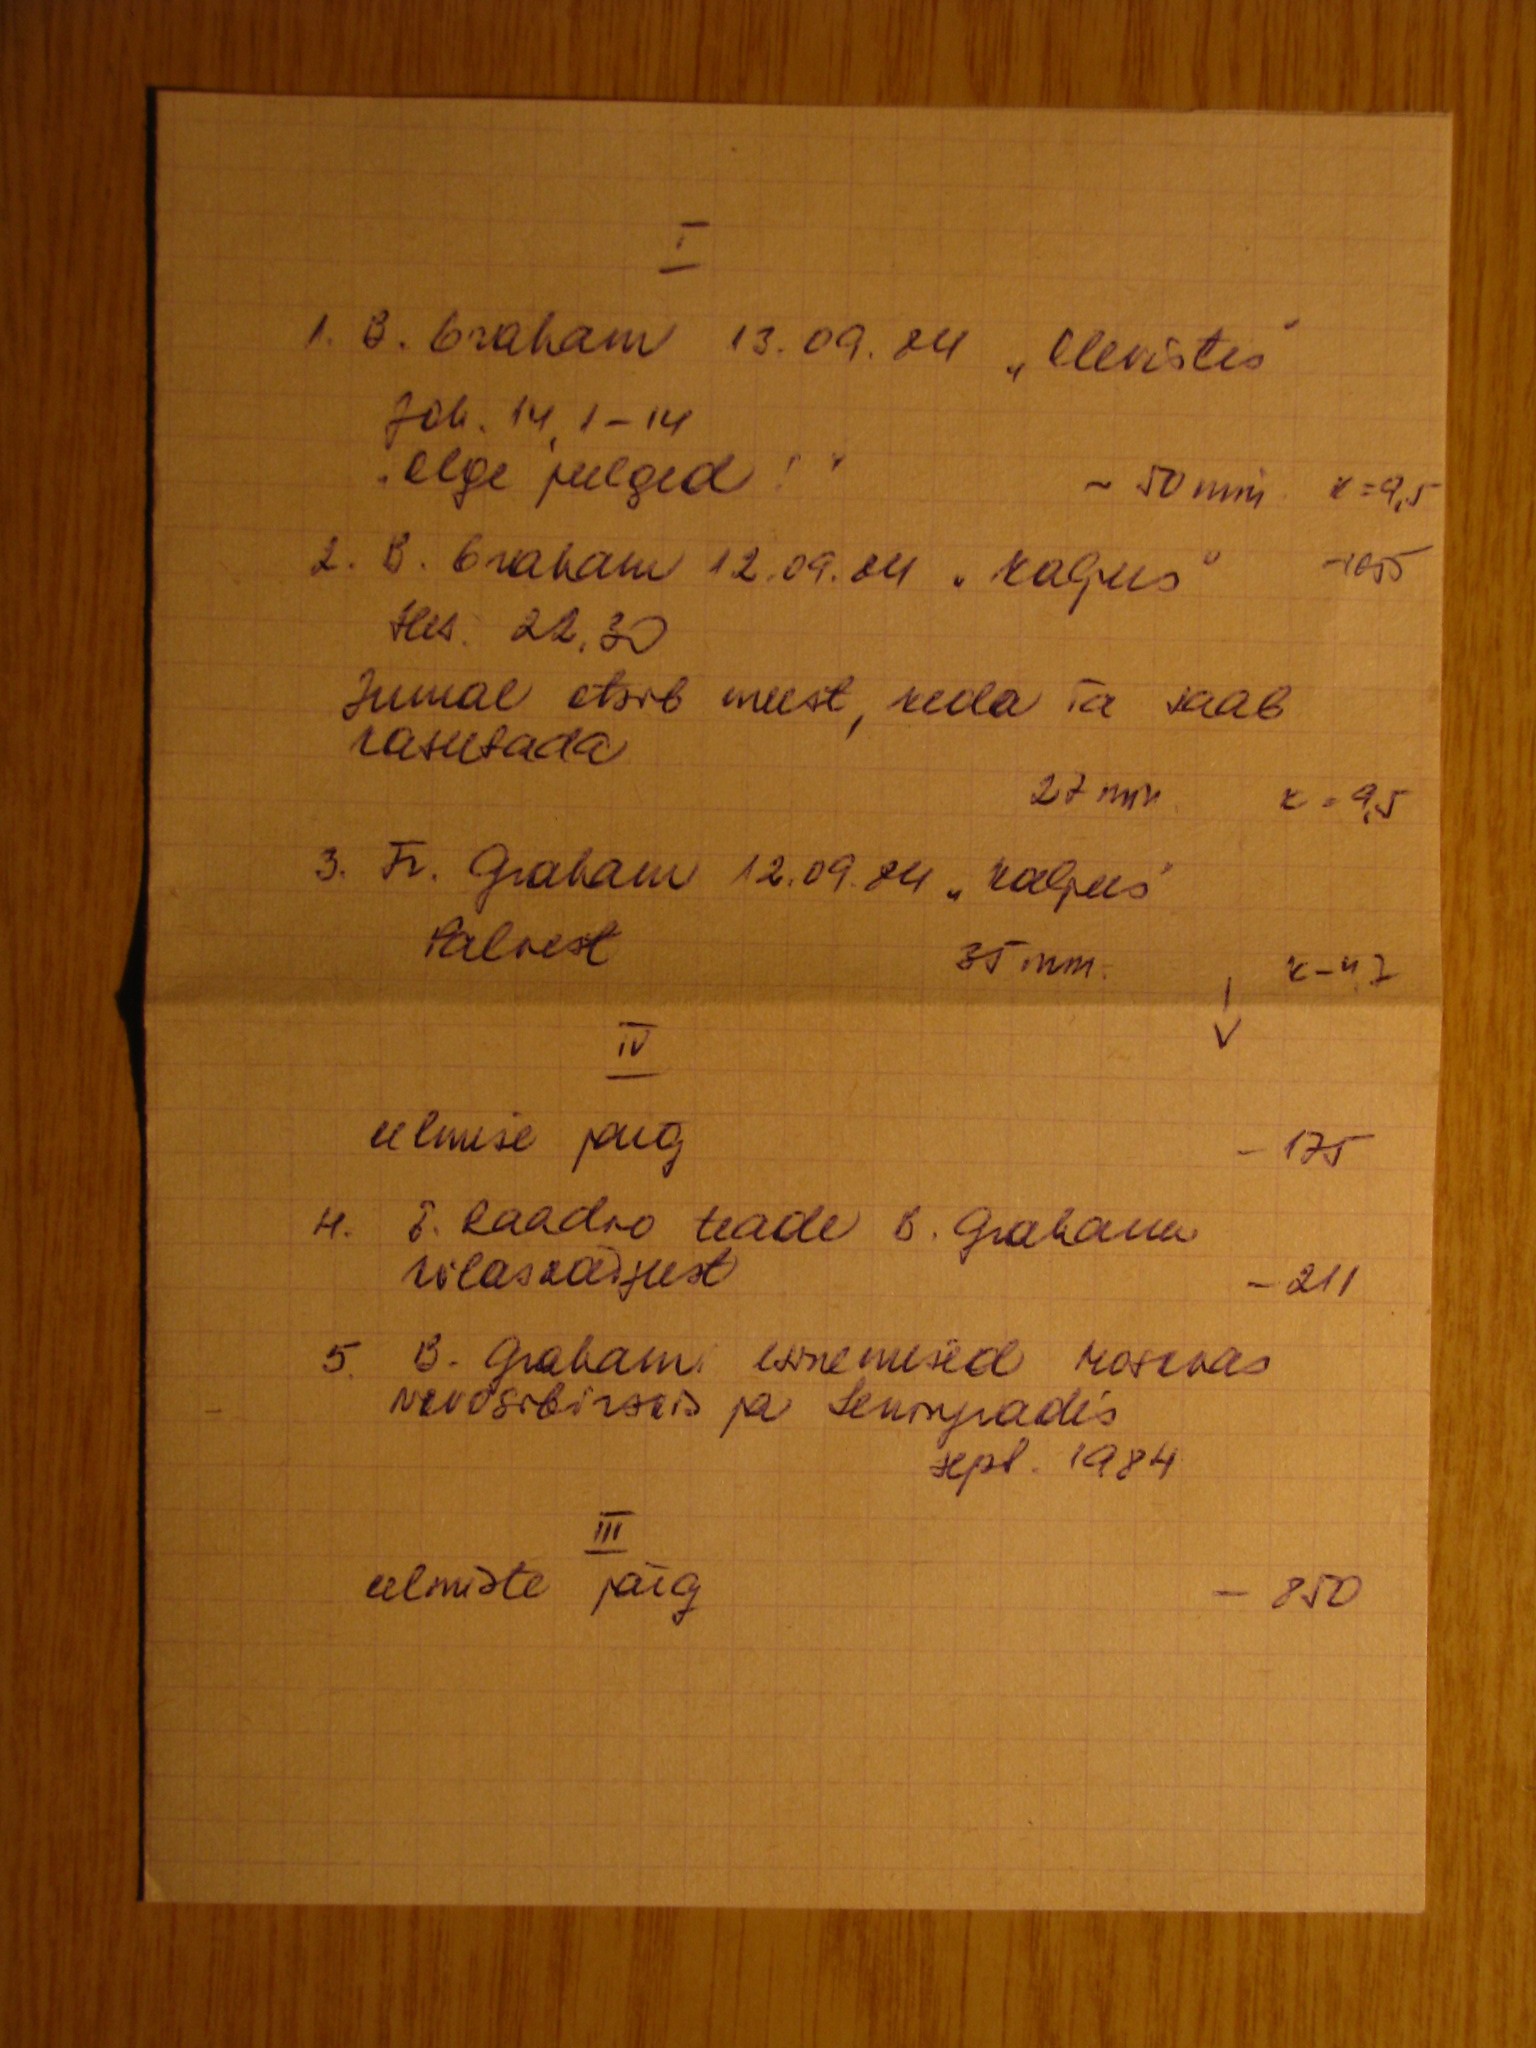 I
1. B. Graham 13.09.84 „Olevistes“
Joh. 14, 1-14
„Olge julged!“ ~ 50 min. k=9,5
2. B. Graham 12.09.84 „Kaljus“
Hes. 22,30
Jumal otsib meest, keda Ta saab
kasutada
27 min. k=9,5
3. Fr. Graham 12.09.84 „Kaljus“
Palvest 35 min. k-4,7
IV
eelmise järg - 175
4. E. Raadio teade B. Grahami
külaskäigust - 211
5. B. Grahami esinemised Moskvas
Novosibirskis ja Leningradis
sept. 1984
III
eelmiste järg - 850